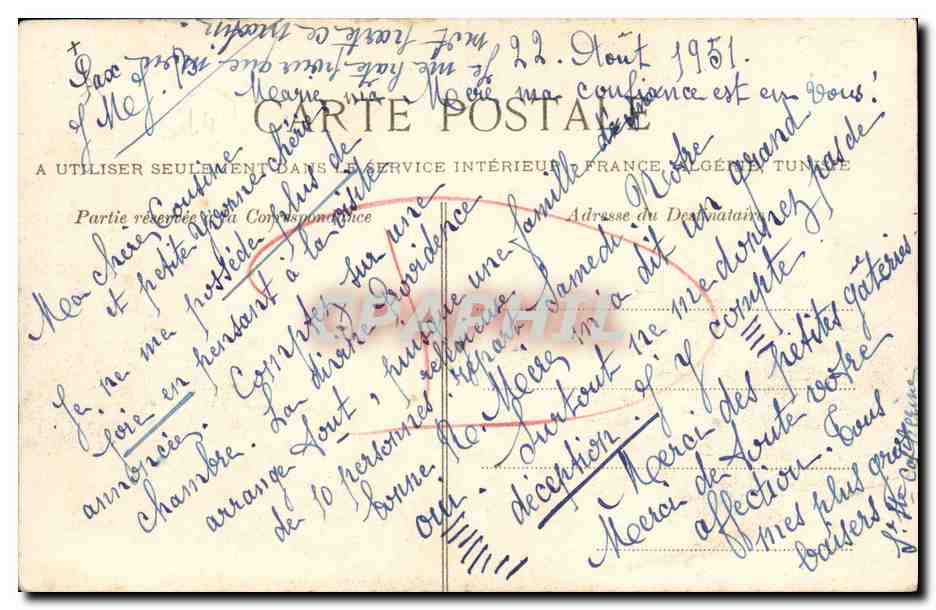 +
Pax
J. M. J.
22 Août 1951.
Je me hâte pour que
mot parte ce matin.
Marie ma Mère ma confiance est en vous!
CARTE POSTALE
A UTILISER SEULEMENT DANS LE SERVICE INTÉRIEUR - FRANCE, ALGÉRIE, TUNISIE
Partie réservée à la Correspondance
Adresse du Destinataire
Ma chère Cousine
et petite Yvonne chérie
Je ne me possède plus de
joie en pensant à la visite
annoncée. Comptez sur une
chambre. La divine Providence
arrange tout, puisque une famille
de 10 personnes repart samedi. Notre
bonne Rde Mère m'a dit un grand
oui. Surtout ne me donnez pas de
déception. J'y compte.
Merci des petites gâteries.
Merci de toute votre
affection. Tous
mes plus gros
baisers
Sr Ste Catherine
religieuse
CPAPHIL